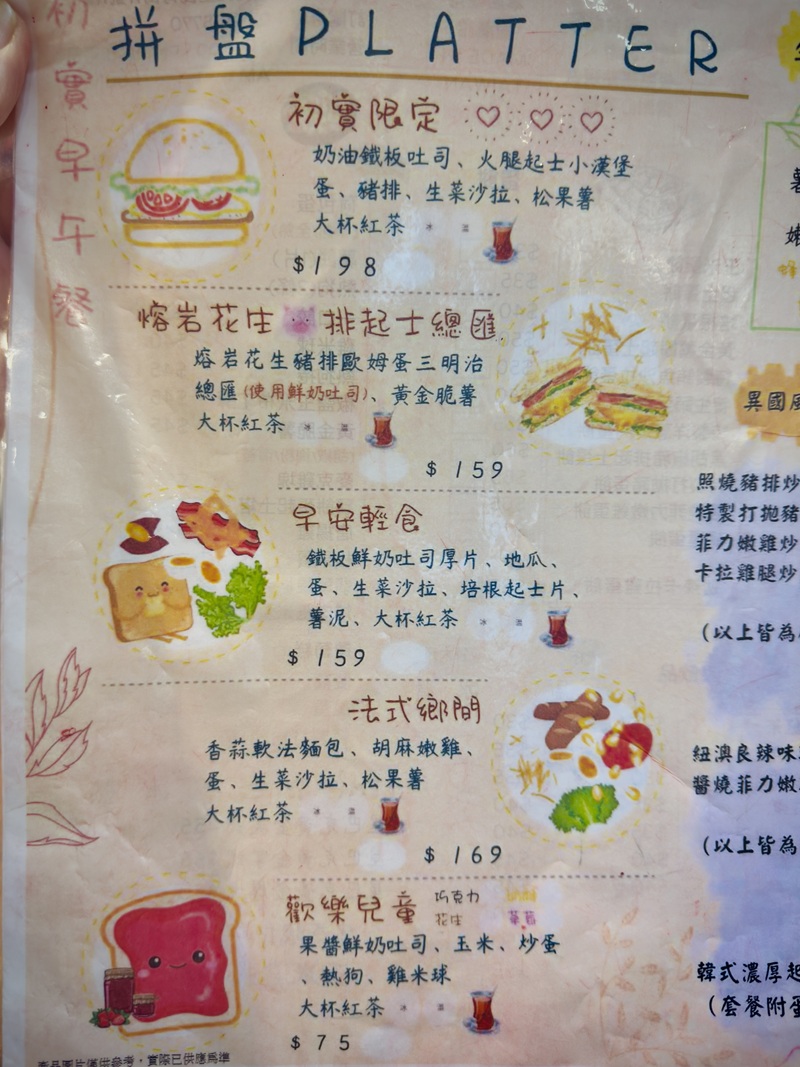 初實早午餐
拼盤PLATTER
初實限定
奶油鐵板吐司、火腿起士小漢堡
蛋、豬排、生菜沙拉、松果薯
大杯紅茶 冰 溫
$198
熔岩花生 排起士總匯
熔岩花生豬排歐姆蛋三明治
總匯(使用鮮奶吐司)、黃金脆薯
大杯紅茶 冰 溫
$159
早安輕食
鐵板鮮奶吐司厚片、地瓜、
蛋、生菜沙拉、培根起士片、
薯泥、大杯紅茶 冰 溫
$159
法式鄉間
香蒜軟法麵包、胡麻嫩雞、
蛋、生菜沙拉、松果薯
大杯紅茶 冰 溫
$169
歡樂兒童 巧克力 奶酥
花生 草莓
果醬鮮奶吐司、玉米、炒蛋
、熱狗、雞米球
大杯紅茶 冰 溫
$75
產品圖片僅供參考，實際已供應為準
異國風
照燒豬排炒
特製打拋豬
菲力嫩雞炒
卡拉雞腿炒
(以上皆為
紐澳良辣味
醬燒菲力嫩
(以上皆為
韓式濃厚起
(套餐附蛋